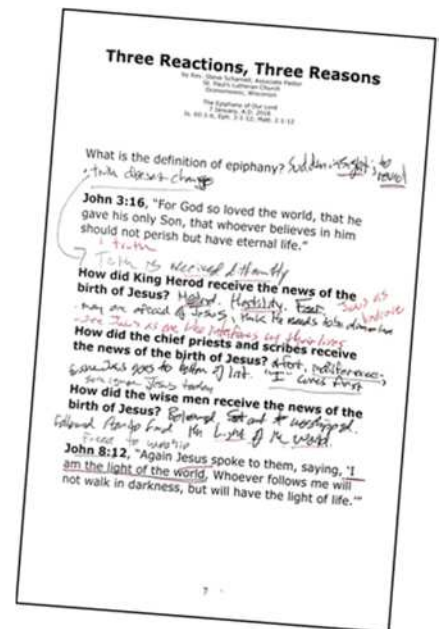 Three Reactions, Three Reasons
by Rev. Steve Scharnell, Associate Pastor
St. Paul's Lutheran Church
Oconomowoc, Wisconsin
The Epiphany of Our Lord
7 January, A.D. 2018
Is. 60:1-6, Eph. 3:1-12, Matt. 2:1-12
What is the definition of epiphany? Sudden insight; to
reveal
truth doesn't change
John 3:16, "For God so loved the world, that he
gave his only Son, that whoever believes in him
should not perish but have eternal life."
truth
Truth is received differently
How did King Herod receive the news of the
birth of Jesus? Hatred. Hostility. Fear
Jesus as
may are afraid of Jesus, think He needs to be
see Jesus as one who interferes w/ their lives
How did the chief priests and scribes receive
the news of the birth of Jesus? indifference,
Jesus goes to bottom of list. "I" comes first
ignore Jesus today
How did the wise men receive the news of the
birth of Jesus? Believed. Set out to worship.
Followed the Light of the world.
to worship
John 8:12, "Again Jesus spoke to them, saying, 'I
am the light of the world. Whoever follows me will
not walk in darkness, but will have the light of life.'"
7